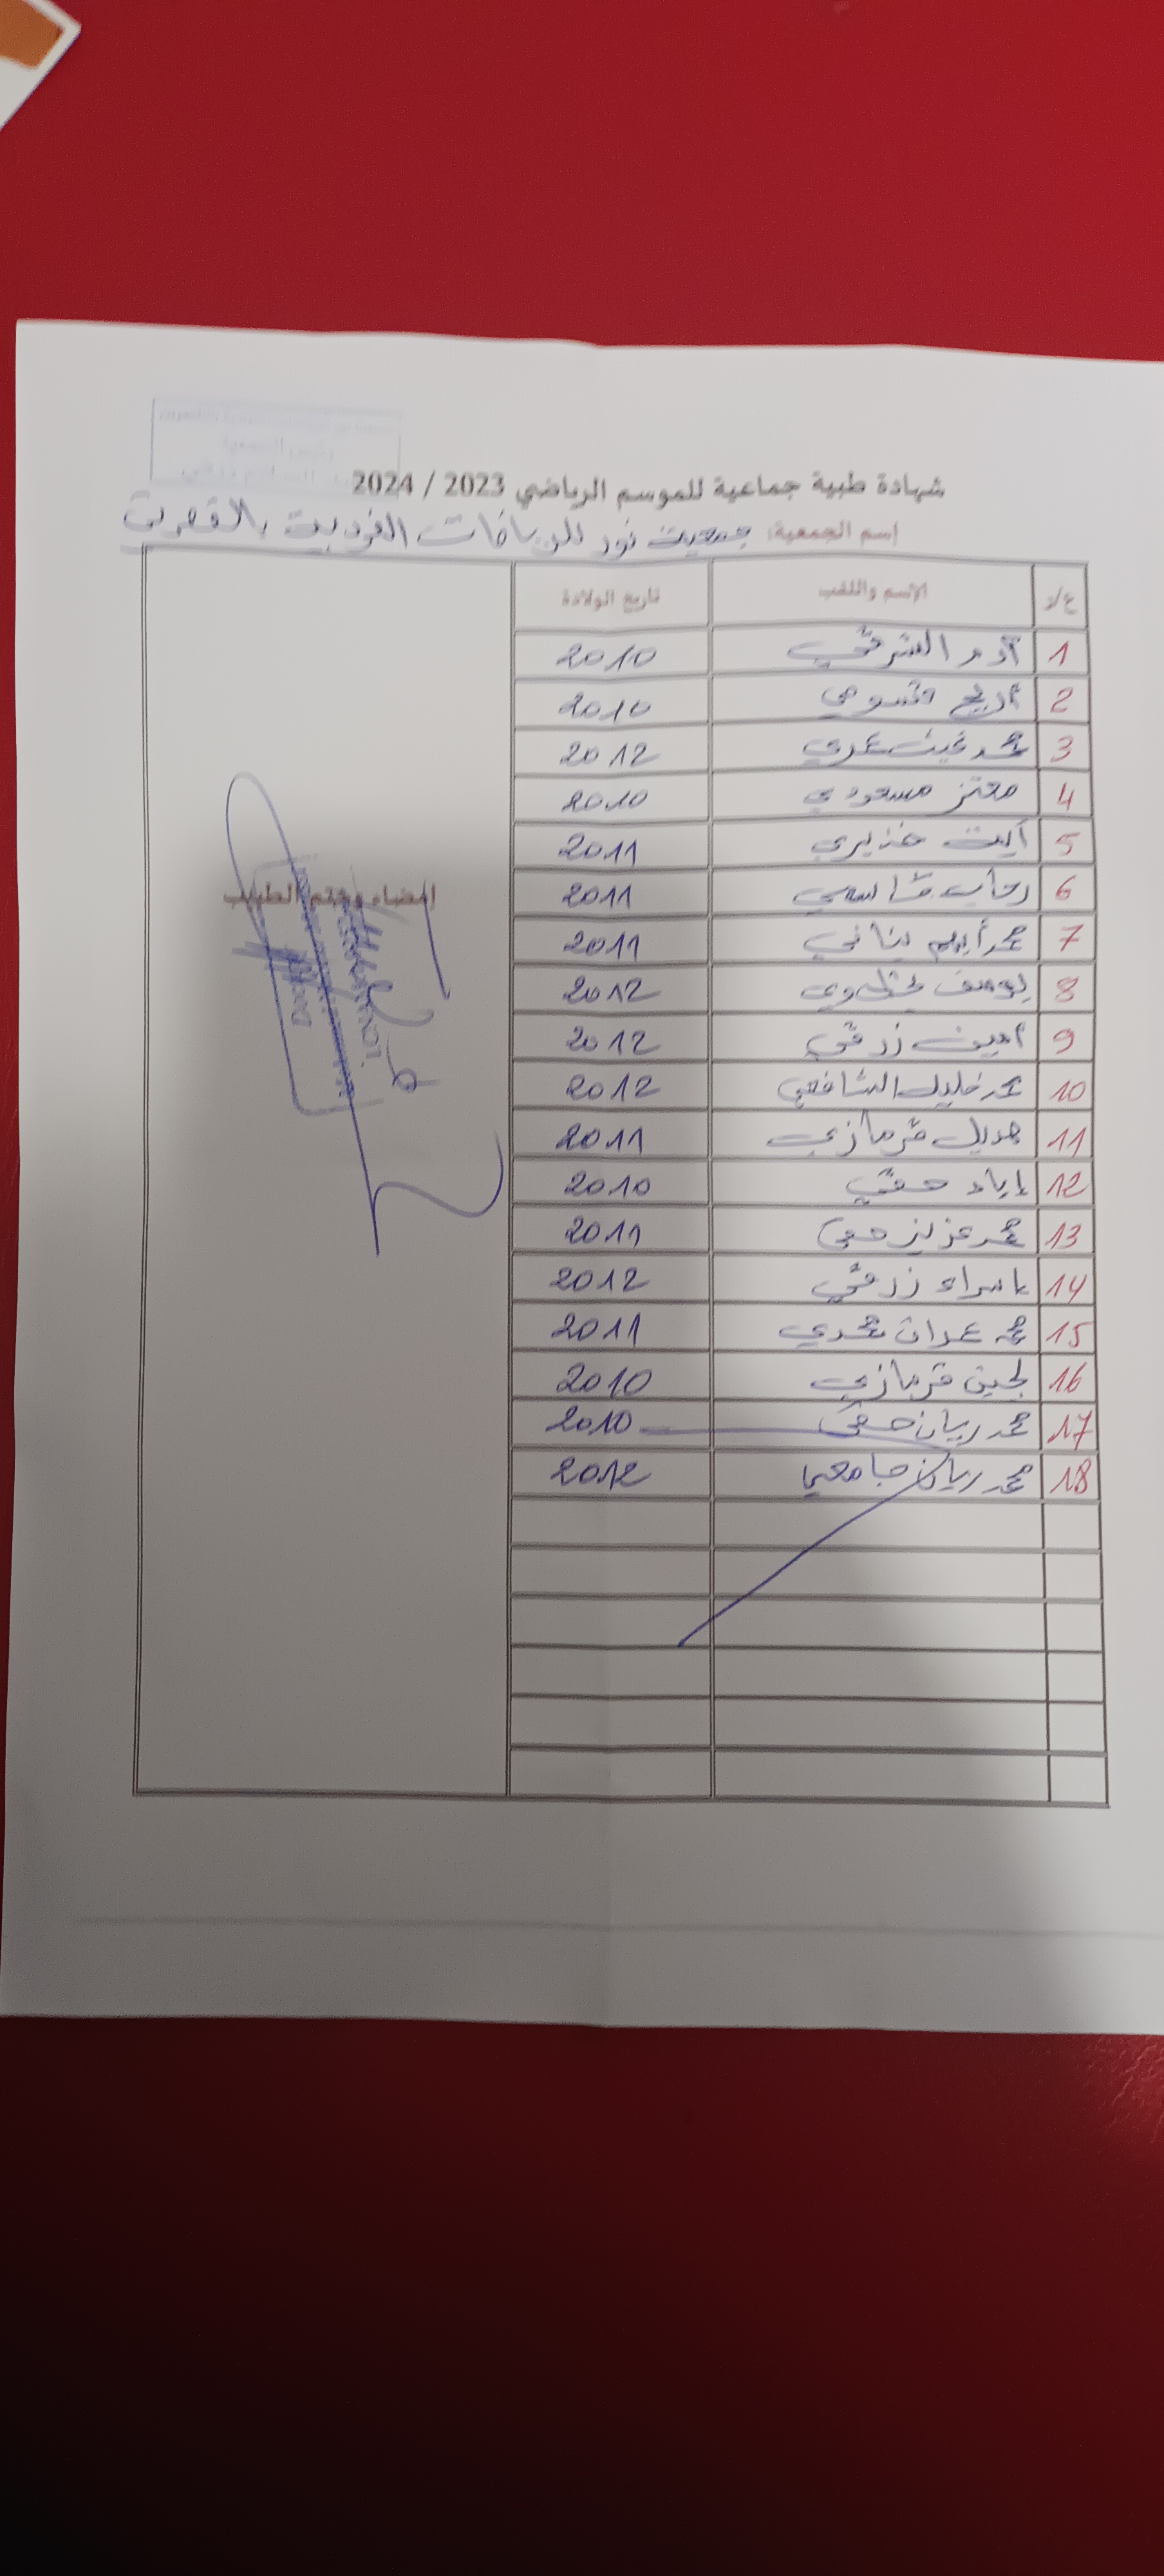 شهادة طبية جماعية للموسم الرياضي 2023 / 2024
إسم الجمعية: جمعية نور للرياضات الفردية بالقصرين
ع/د الإسم واللقب تاريخ الولادة
1 آدم الشرقي 2010
2 أريج قسومي 2010
3 محمد غيث عمري 2012
4 معتز مسعودي 2010
5 آيت خذيري 2011
6 رحاب قاسمي 2011
7 محمد أيهم بناني 2011
8 يوسف 2012
9 أمين زرقي 2012
10 محمد خليل الشافعي 2012
11 هديل قرمازي 2011
12 إياد حقي 2010
13 محمد عزيز حقي 2011
14 إسراء زرقي 2012
15 محمد عمران محمدي 2011
16 لجين قرمازي 2010
17 محمد ريان حقي 2010
18 محمد ريان جامعي 2012
إمضاء وختم الطبيب